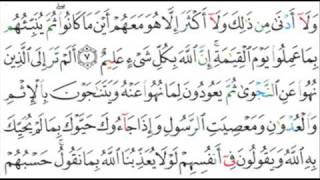 وَلَآ أَدْنَىٰ مِن ذَٰلِكَ وَلَآ أَكْثَرَ إِلَّا هُوَ مَعَهُمْ أَيْنَ مَا كَانُوا۟ ۖ ثُمَّ يُنَبِّئُهُم
بِمَا عَمِلُوا۟ يَوْمَ ٱلْقِيَٰمَةِ ۚ إِنَّ ٱللَّهَ بِكُلِّ شَىْءٍ عَلِيمٌ ٧ أَلَمْ تَرَ إِلَى ٱلَّذِينَ
نُهُوا۟ عَنِ ٱلنَّجْوَىٰ ثُمَّ يَعُودُونَ لِمَا نُهُوا۟ عَنْهُ وَيَتَنَٰجَوْنَ بِٱلْإِثْمِ
وَٱلْعُدْوَٰنِ وَمَعْصِيَتِ ٱلرَّسُولِ وَإِذَا جَآءُوكَ حَيَّوْكَ بِمَا لَمْ يُحَيِّكَ
بِهِ ٱللَّهُ وَيَقُولُونَ فِىٓ أَنفُسِهِمْ لَوْلَا يُعَذِّبُنَا ٱللَّهُ بِمَا نَقُولُ ۚ حَسْبُهُمْ